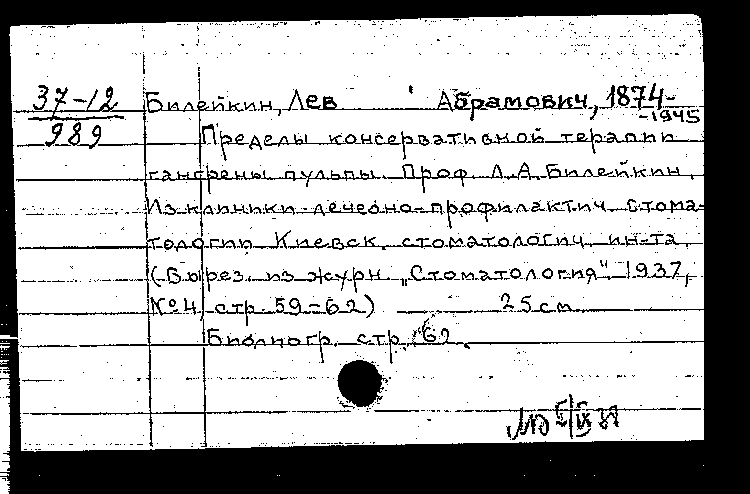 37-12
989
Билейкин, Лев Абрамович, 1874-
-1945
Пределы консервативной терапии
гангрены пульпы. Проф. Л.А. Билейкин.
Из клиники лечебно-профилактич. стома-
тологии Киевск. стоматологич. ин-та.
(Вырез. из журн. „Стоматология" 1937,
№4, стр. 59-62) 25 см.
Библиогр. стр. 62.